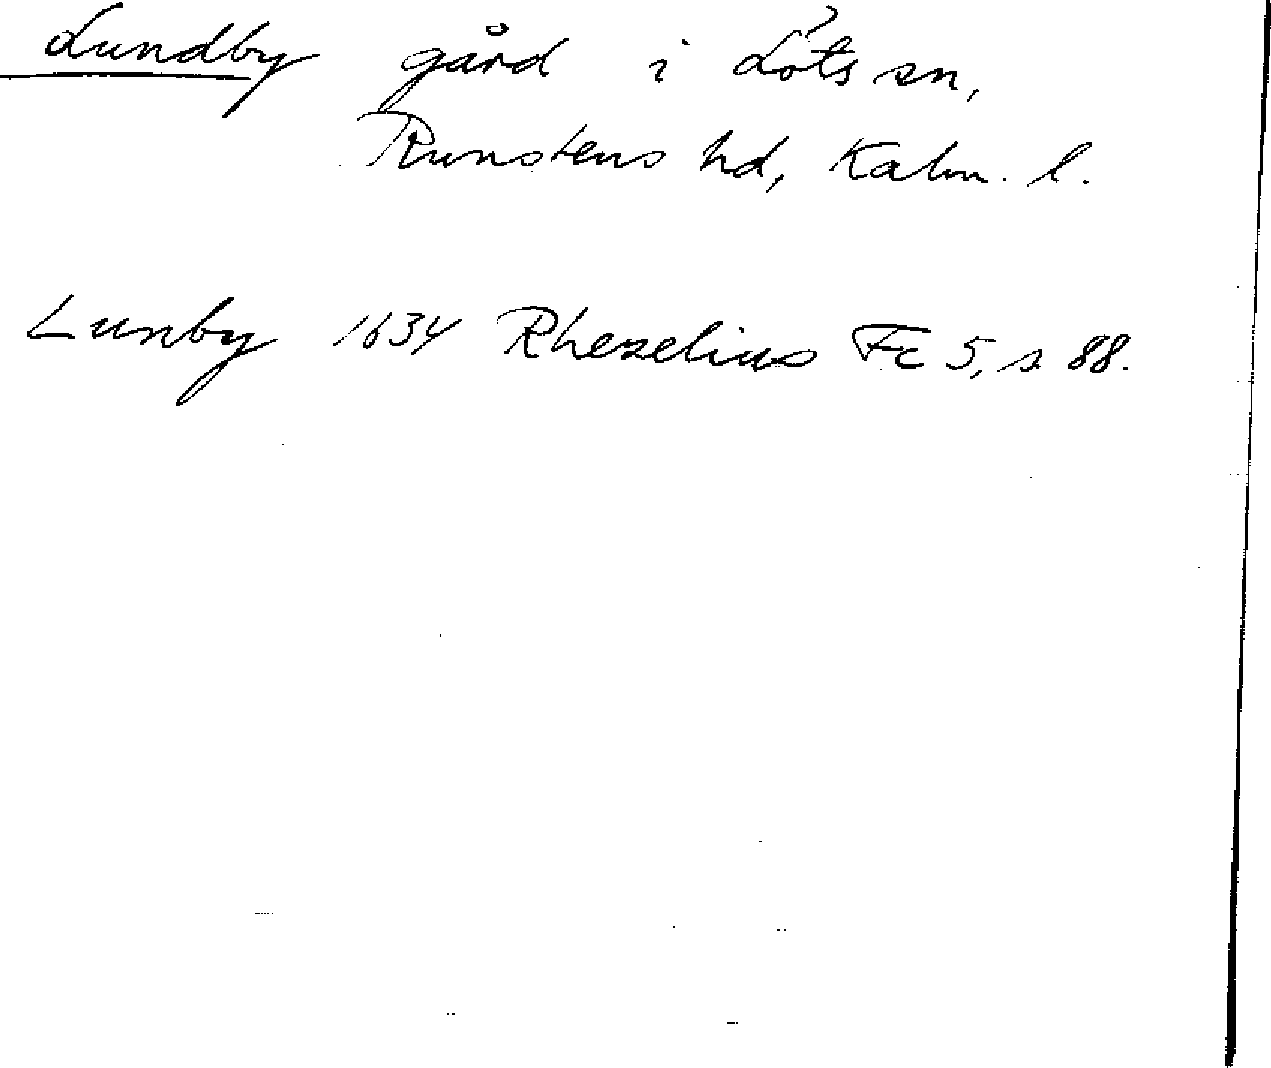 Lundby gård i Löts sn,
Runstens hd, Kalm. l.
Lunby 1634 Rhezelius Fc 5, s. 88.